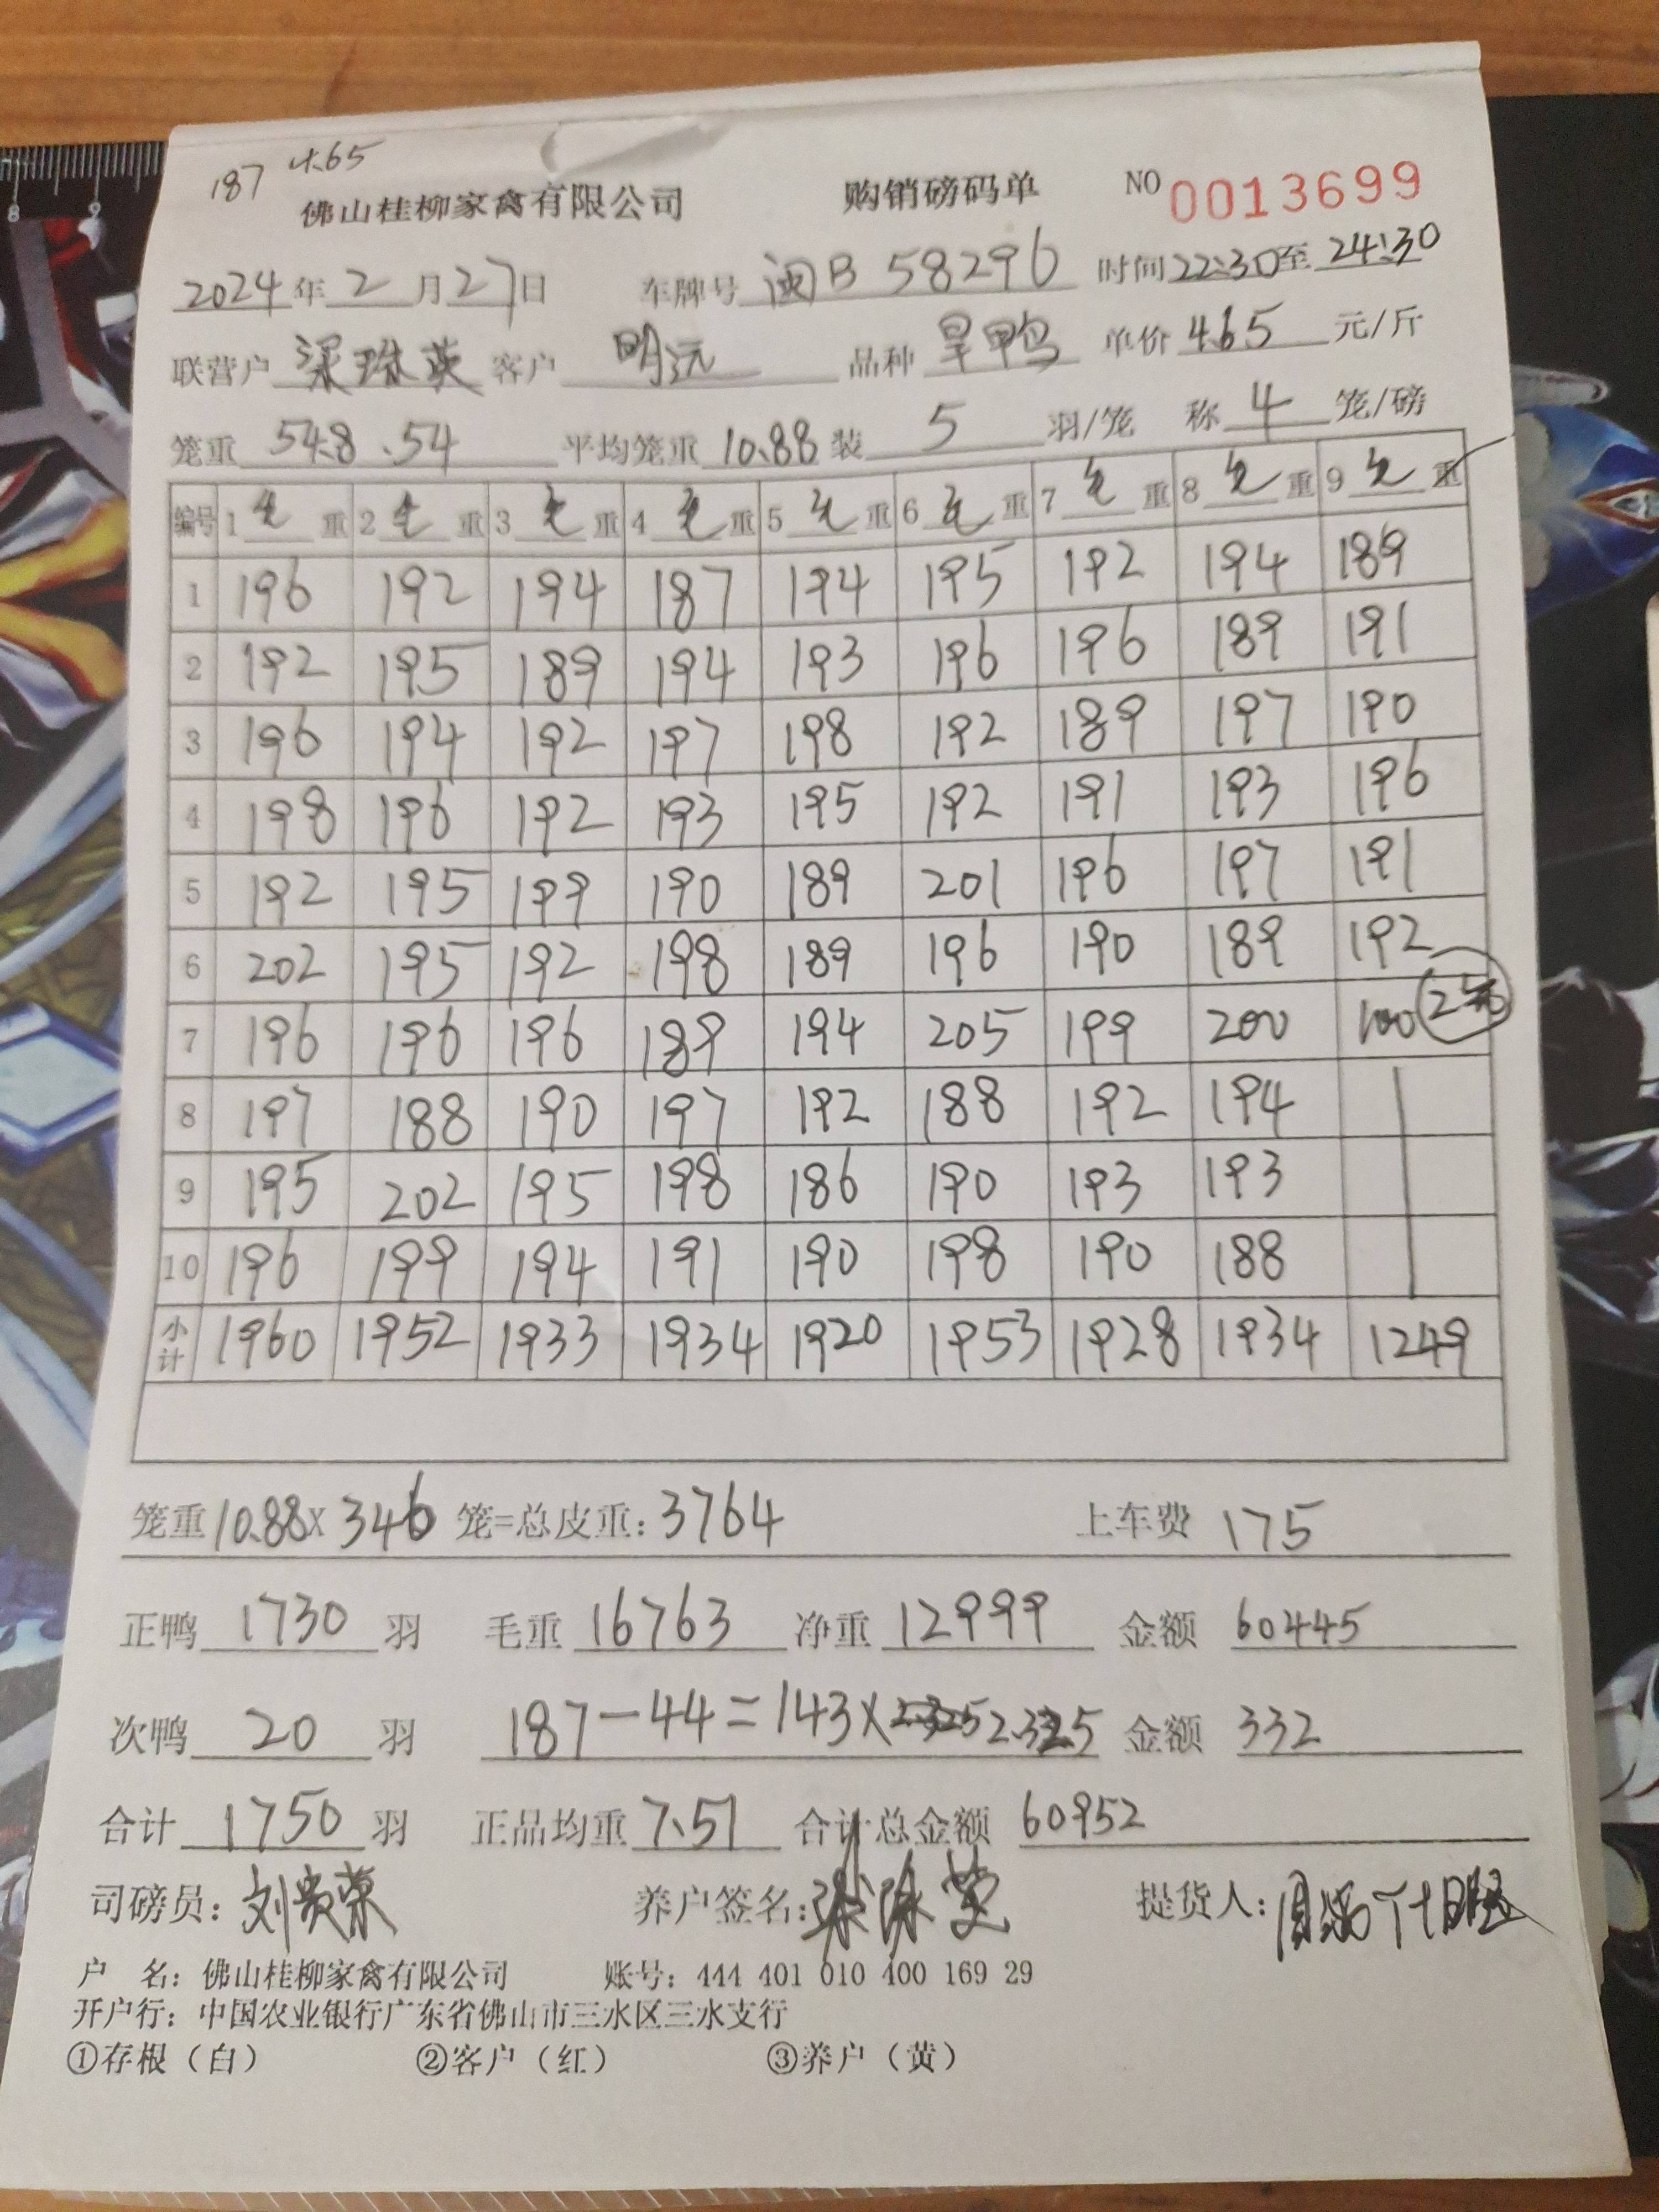 187 4.65
佛山桂柳家禽有限公司 购销磅码单 NO 0013699
2024年2月27日 车牌号 闽B 58296 时间22:30至24:30
联营户 梁珠英 客户 明远 品种 旱鸭 单价 4.65 元/斤
笼重 54.8 .54 平均笼重 10.88 装 5 羽/笼 称 4 笼/磅
编号 1 毛 重 2 毛 重 3 毛 重 4 毛 重 5 毛 重 6 毛 重 7 毛 重 8 毛 重 9 毛 重
1 196 192 194 187 194 195 192 194 189
2 192 195 189 194 193 196 196 189 191
3 196 194 192 197 198 192 189 197 190
4 198 196 192 193 195 192 191 193 196
5 192 195 199 190 189 201 196 197 191
6 202 195 192 198 189 196 190 189 192
7 196 196 196 189 194 205 199 200 100
8 197 188 190 197 192 188 192 194
9 195 202 195 198 186 190 193 193
10 196 199 194 191 190 198 190 188
小计 1960 1952 1933 1934 1920 1953 1928 1934 1249
笼重10.88X 346 笼=总皮重：3764 上车费 175
正鸭 1730 羽 毛重 16763 净重 12999 金额 60445
次鸭 20 羽 187-44=143X 2.325 金额 332
合计 1750 羽 正品均重 7.51 合计总金额 60952
司磅员：刘贵荣 养户签名： 提货人：
户 名：佛山桂柳家禽有限公司 账号：444 401 010 400 169 29
开户行：中国农业银行广东省佛山市三水区三水支行
①存根（白） ②客户（红） ③养户（黄）